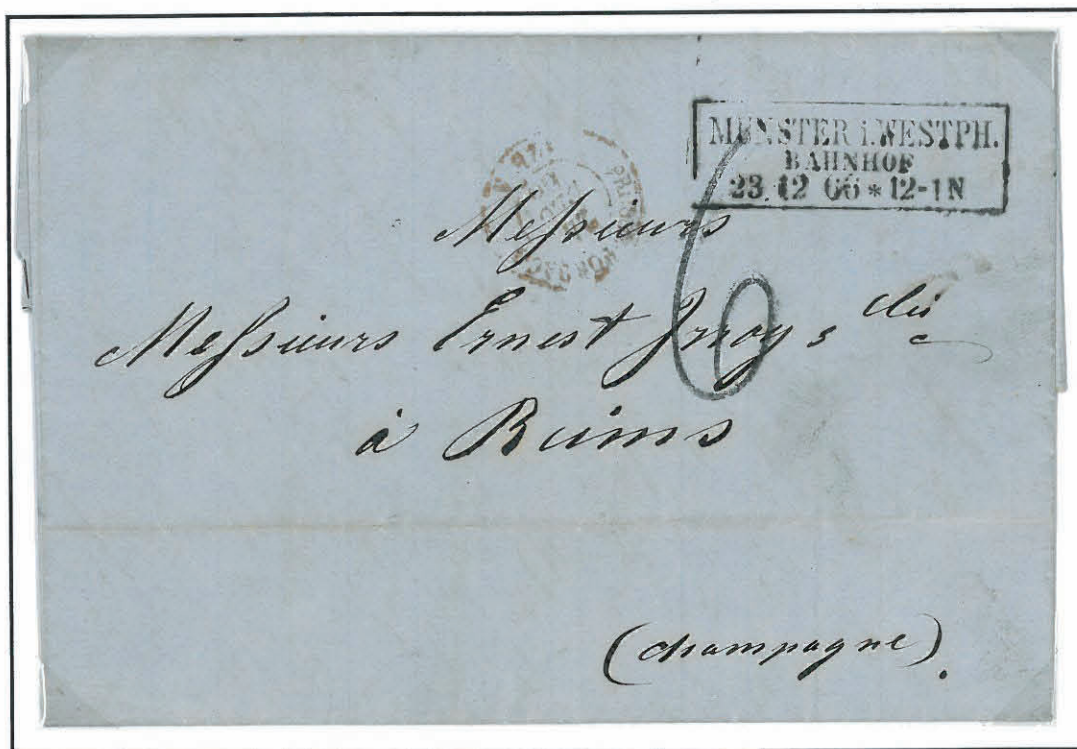 MUNSTER I.WESTPH.
BAHNHOF
23 12 66 * 12-1N
6
Messieurs
Messieurs Ernest Irroy &
à Reims
(champagne).